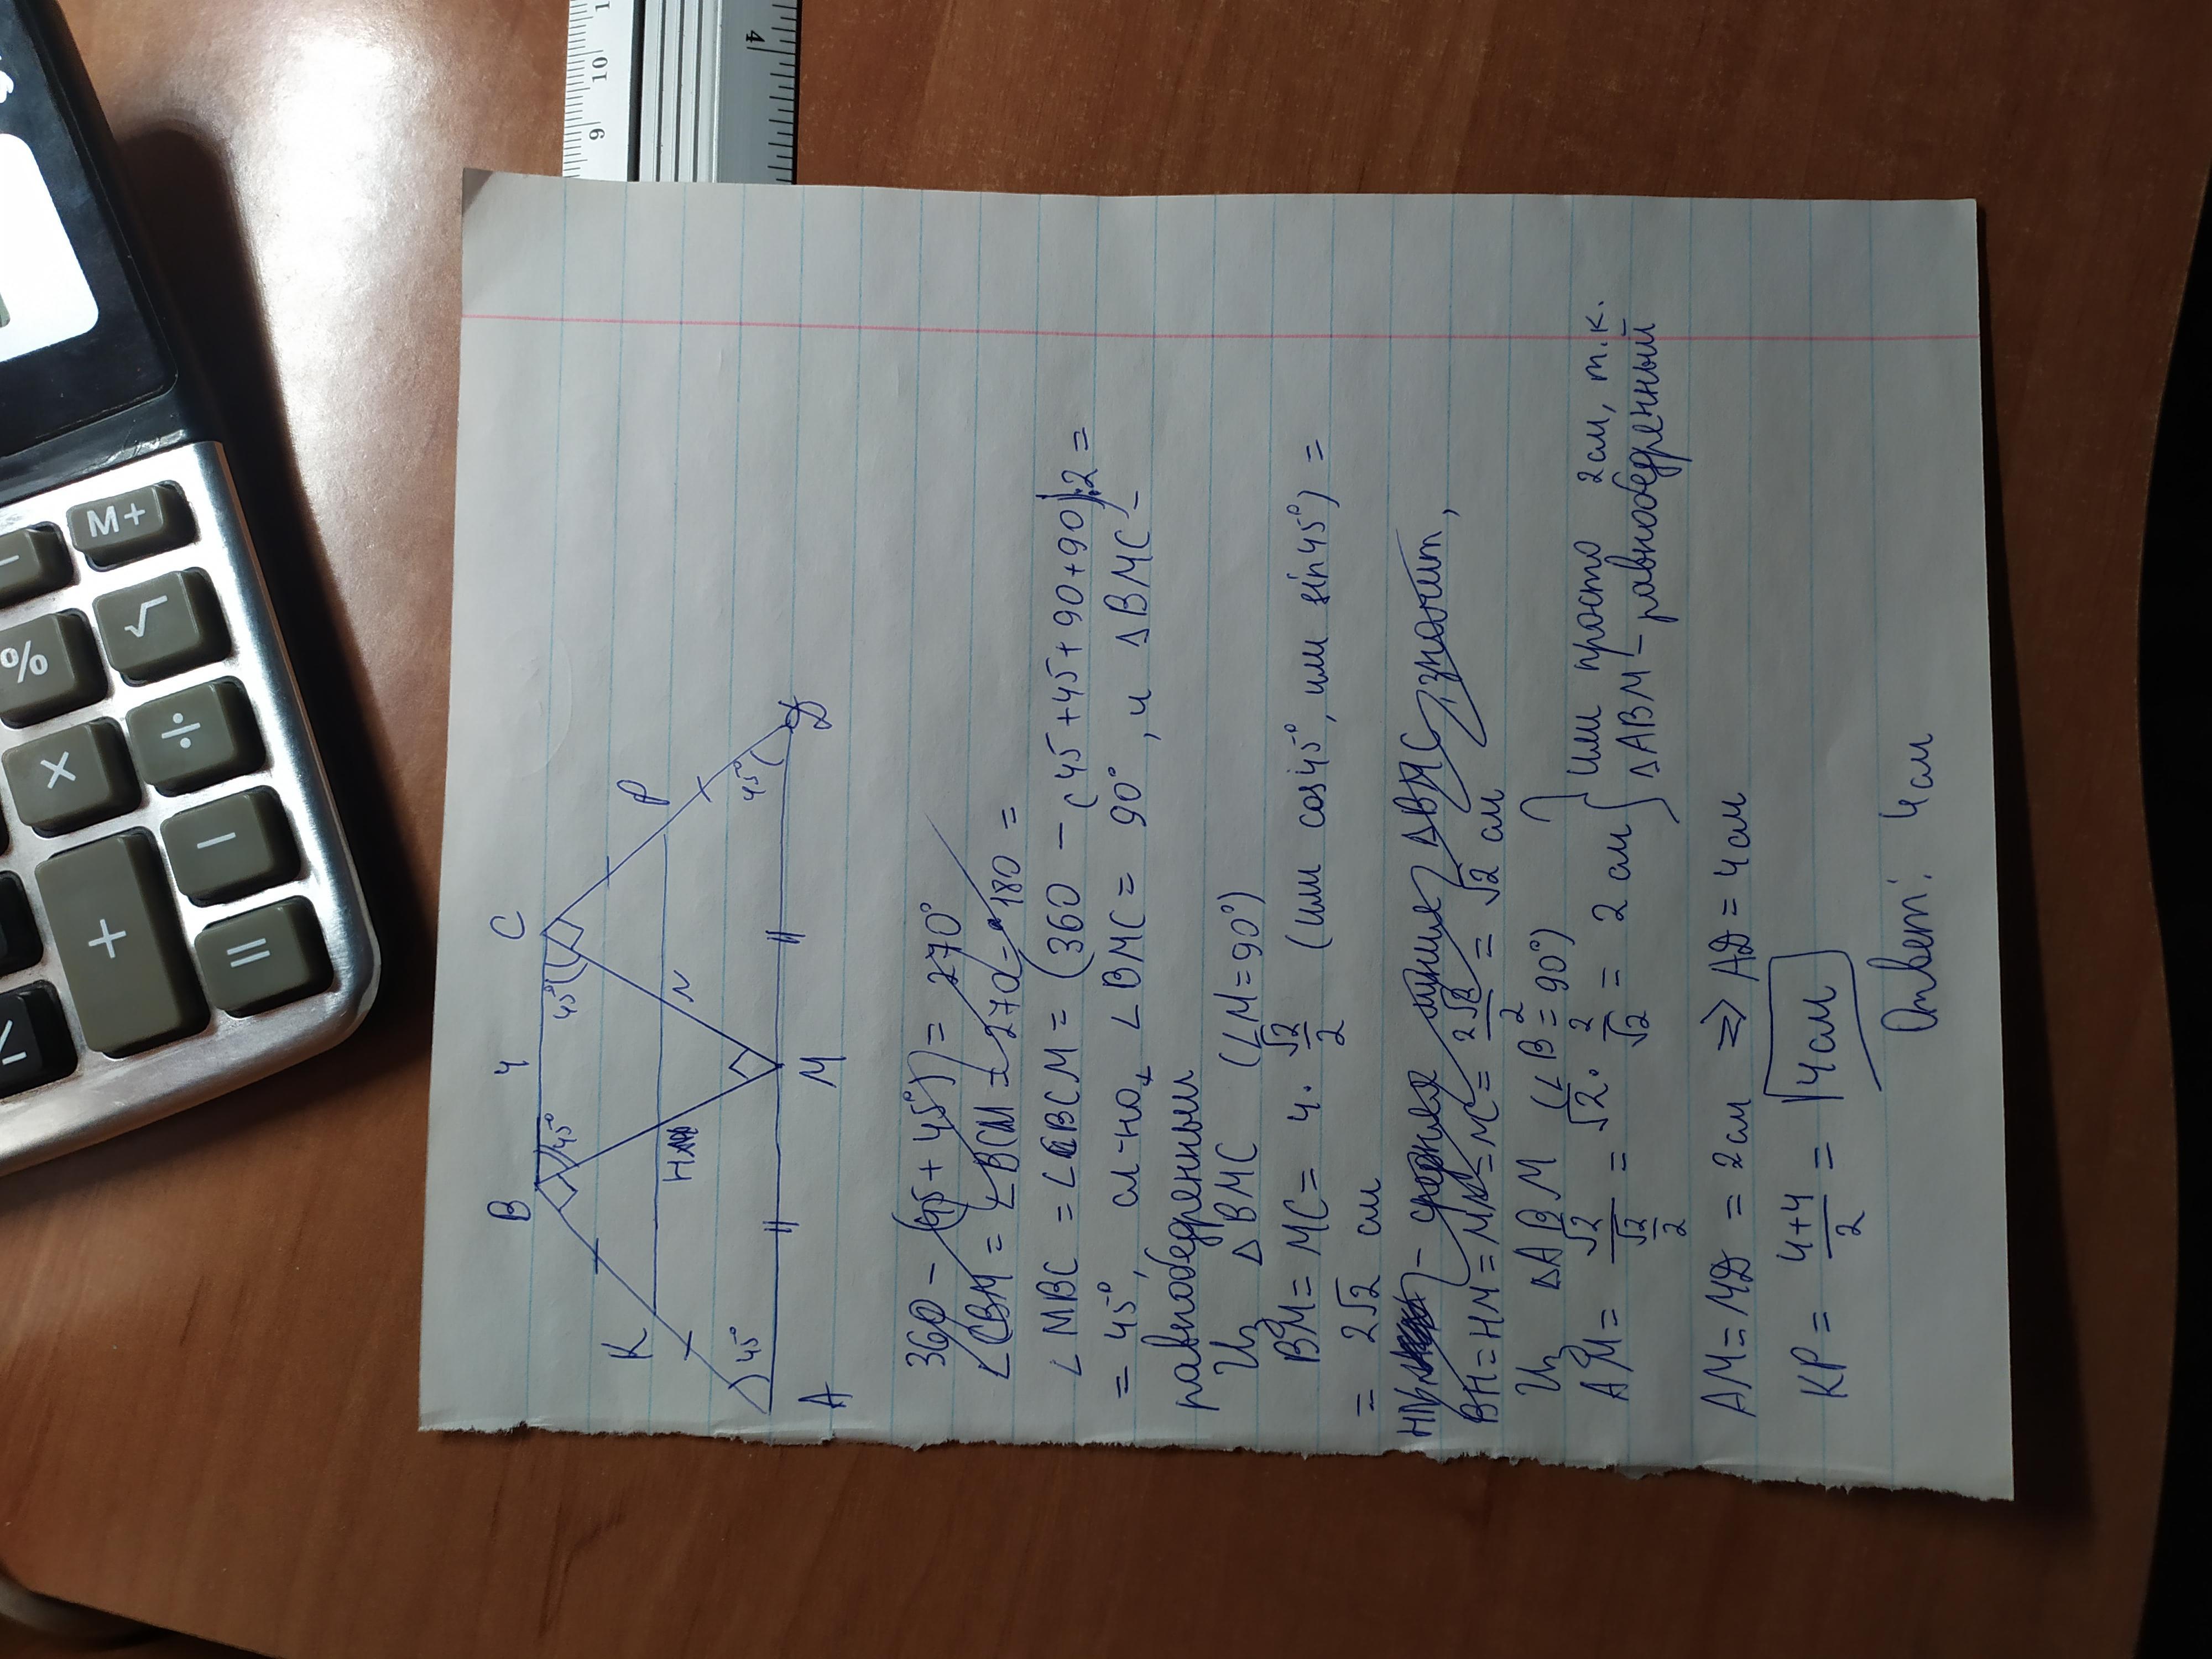 B 4 C
45° 45°
K H N P
45° 45°
A M D
360 - (45 + 45°) = 270°
∠CBM = ∠BCM = 270 - 180 =
∠MBC = ∠BCM = (360 - (45+45+90+90)):2 =
= 45°, ∠BMC = 90°, и △BMC -
равнобедренный
Из △BMC (∠M=90°)
BM = MC = 4 · √2/2 (или cos45°, или sin45°) =
= 2√2 см
- средняя линия △BMC, значит,
BH = HM = MN = NC = 2√2/2 = √2 см
Из △ABM (∠B = 90°)
AM = √2/(√2/2) = √2 · 2/√2 = 2 см
или просто 2 см, т.к.
△ABM - равнобедренный
AM = MD = 2 см => AD = 4 см
KP = 4+4/2 = 4 см
Ответ: 4 см
M+
%
√
×
÷
+
-
=
9 10
4